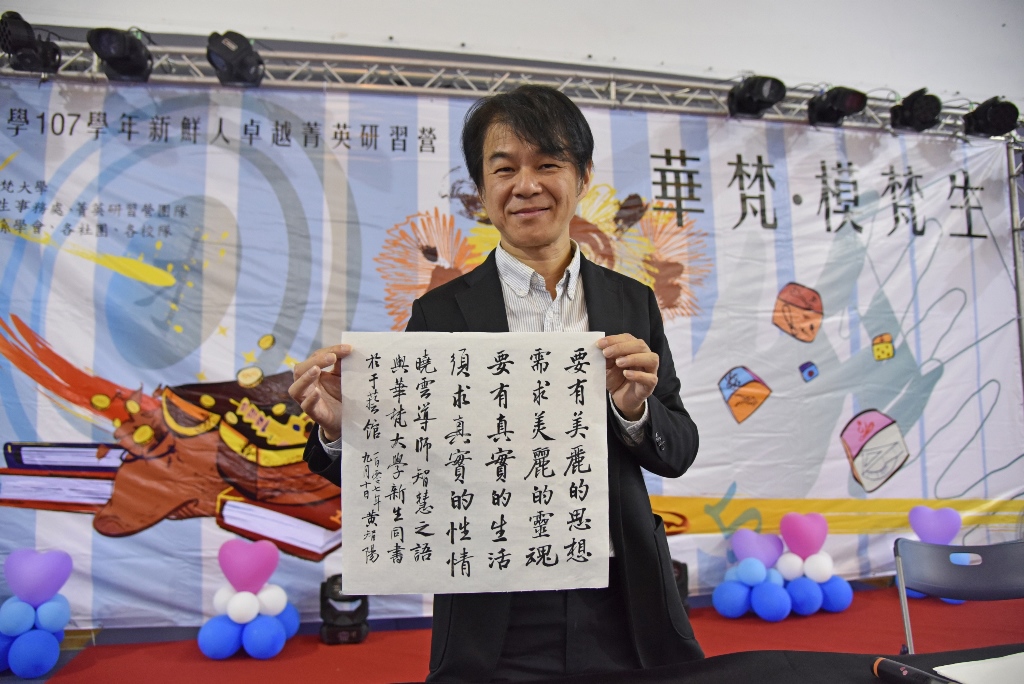 學107學年新鮮人卓越菁英研習營
梵大學
生事務處、菁英研習營團隊
系學會、各社團、各校隊
華梵·模梵生
要有美麗的思想
需求美麗的靈魂
要有真實的生活
須求真實的性情
曉雲導師智慧之語
與華梵大學新生同書
於
館
一百零七年
九月十日
黃智陽